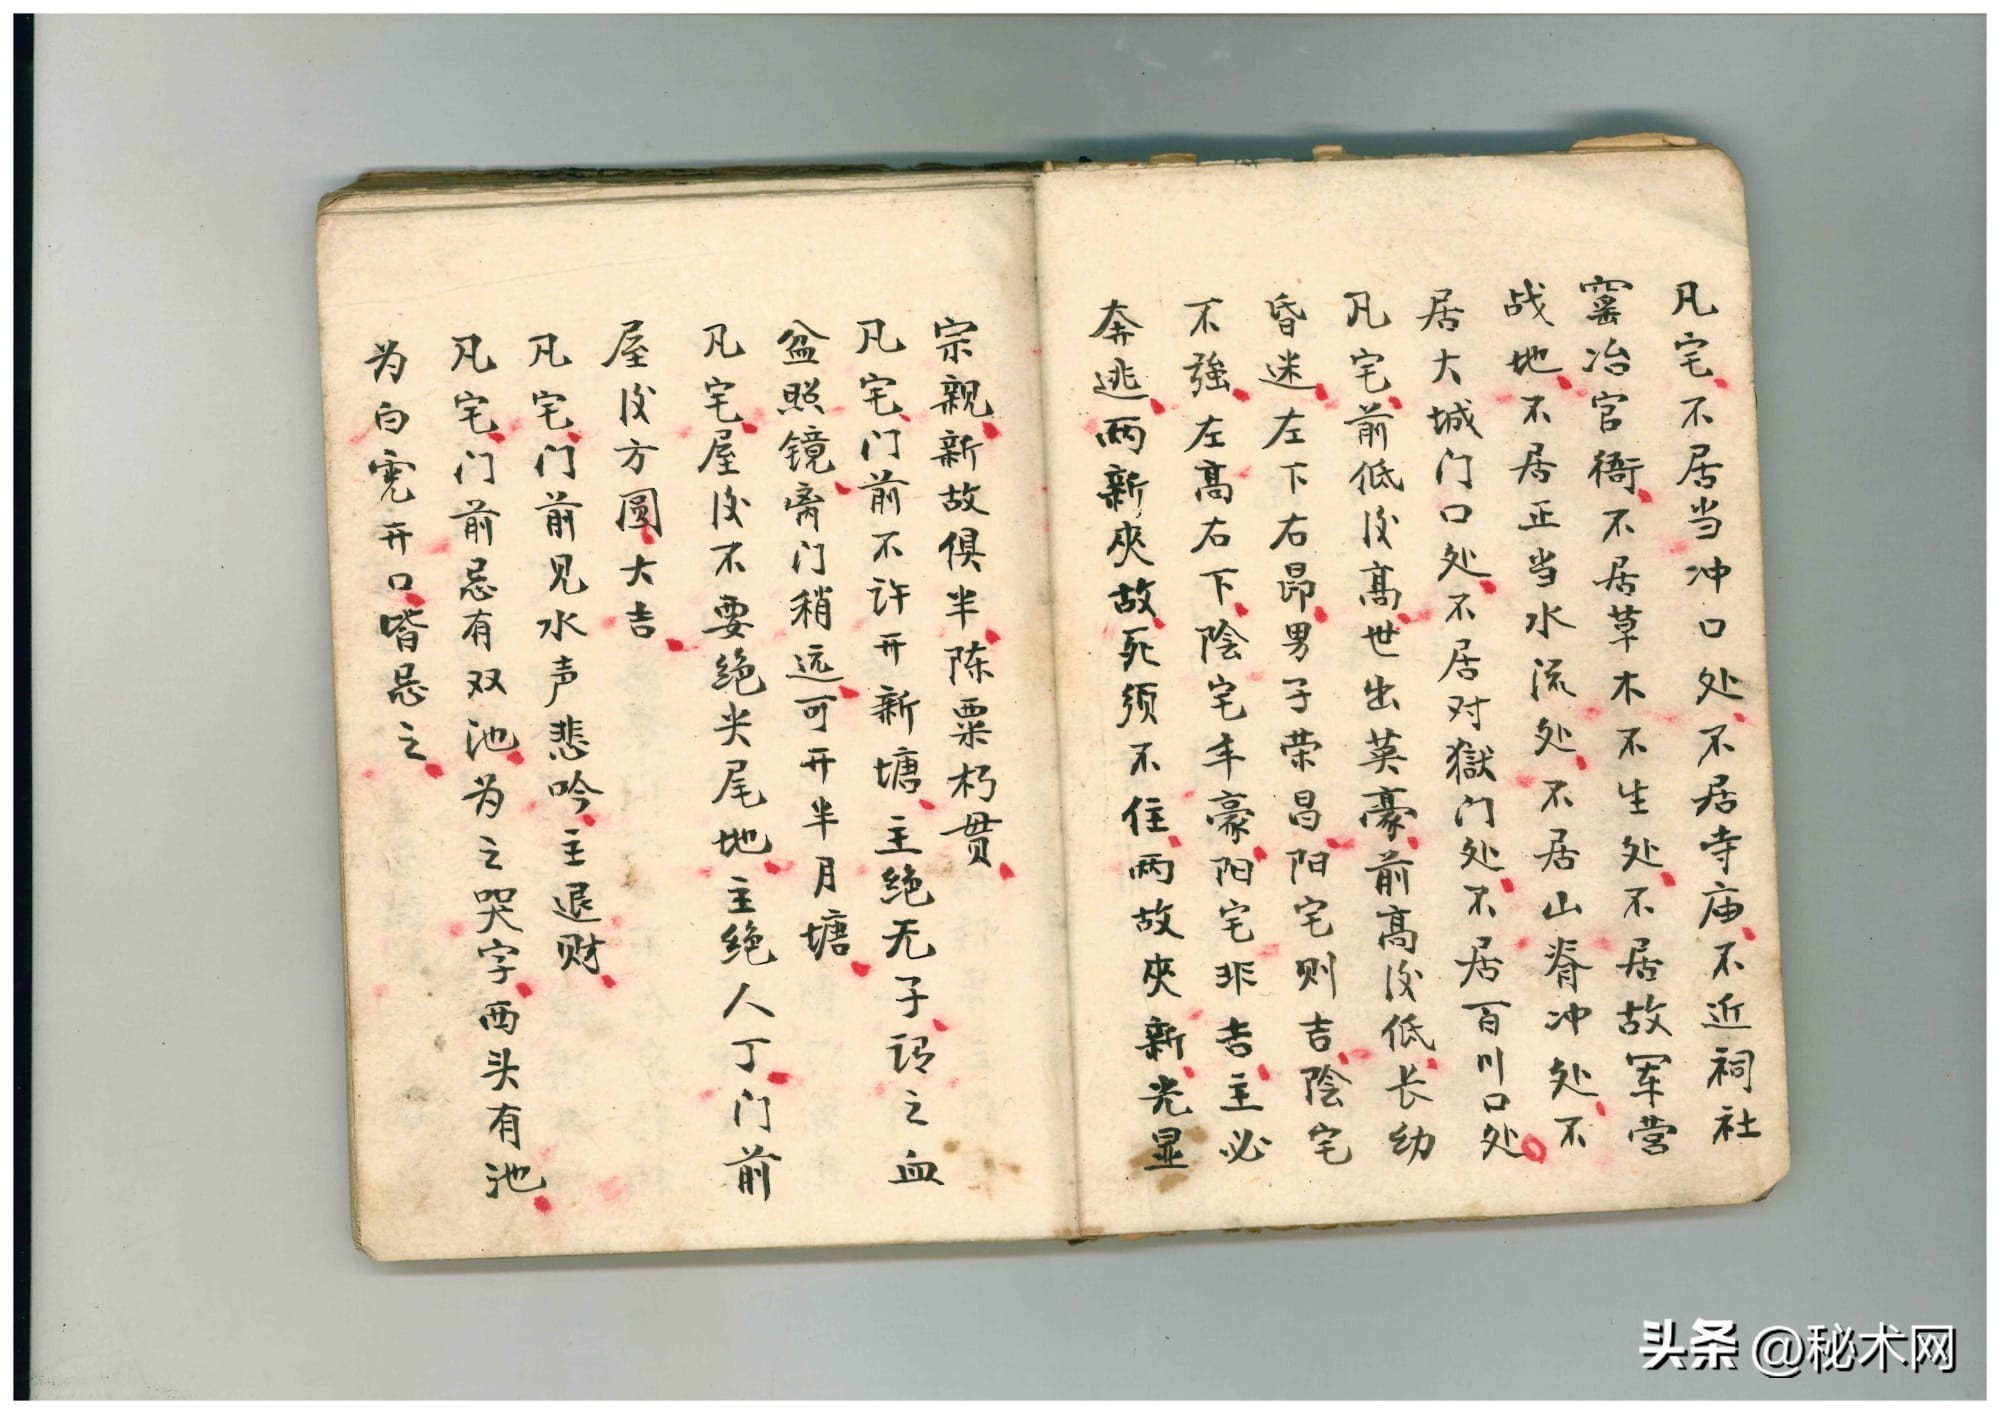 凡宅不居当冲口处不居寺庙不近祠社
窑冶官衙不居草木不生处不居故军营
战地不居正当水流处不居山脊冲处不
居大城门口处不居对獄门处不居百川口处
凡宅前低后高世出英豪前高后低长幼
昏迷左下右昂男子荣昌阳宅则吉陰宅
不強左高右下陰宅丰豪阳宅非吉主必
奔逃两新夾故死须不住两故夾新光显
宗親新故俱半陈粟朽贯
凡宅门前不许开新塘主绝无子谓之血
盆照镜离门稍远可开半月塘
凡宅屋后不要绝尖尾地主绝人丁门前
屋后方圆大吉
凡宅门前见水声悲吟主退财
凡宅门前忌有双池为之哭字西头有池
为白虎开口皆忌之
头条 @秘术网